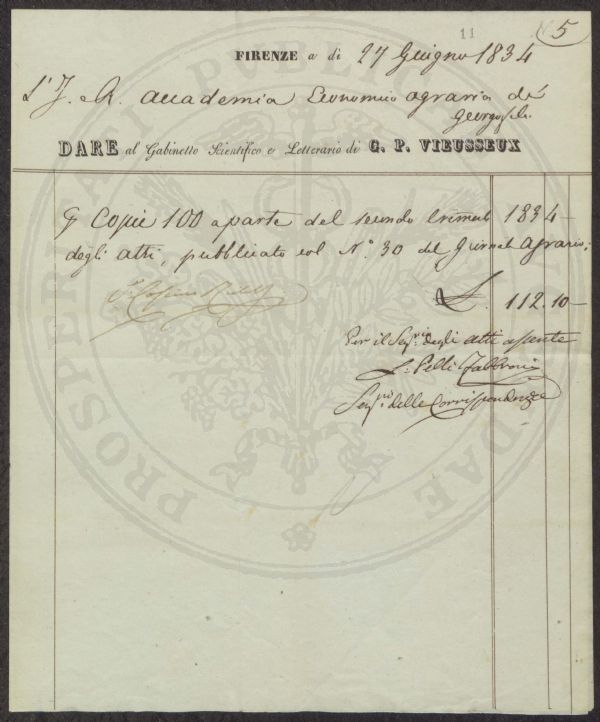 11
5
FIRENZE a di 27 Giugno 1834
L'I. e R. accademia Economico agraria dei
Georgofili.
DARE al Gabinetto Scientifico e Letterario di G. P. VIEUSSEUX
Copie 100 a parte del secondo trimest. 1834 –
degli atti, pubblicato col N.° 30 del Giornale agrario;
£. 112.10 –
Per il Seg.rio degli atti assente
L. Pelli Fabbroni
Seg.rio delle Corrispondenze
PROSPERITATI PUBLICAE